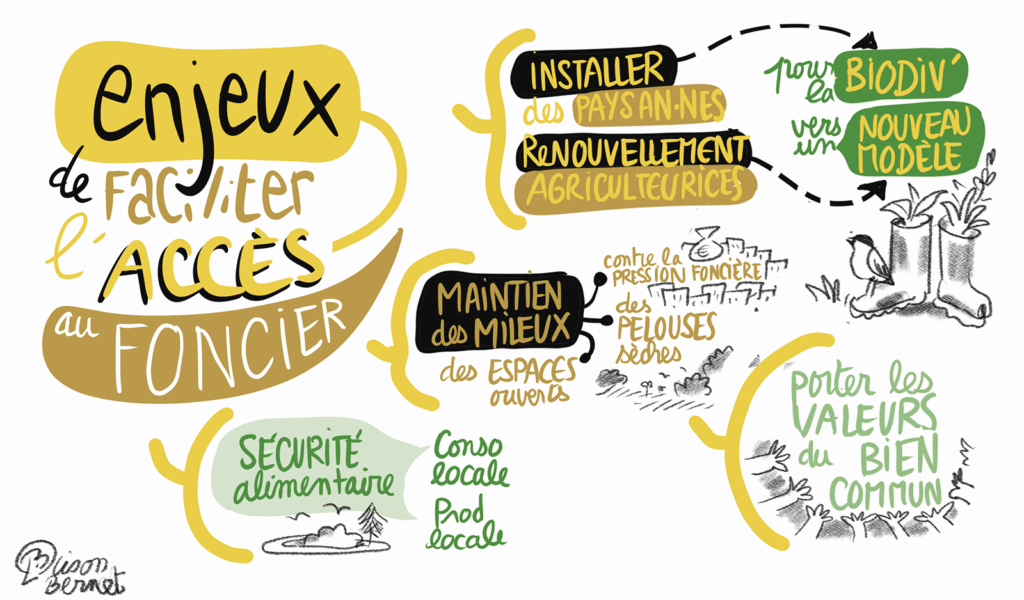 enjeux
de Faciliter
l'ACCÈS
au FONCIER
INSTALLER
des PAYSAN·NES
RENOUVELLEMENT
AGRICULTEURICES
pour
la
BIODIV'
vers
un
NOUVEAU
MODÈLE
MAINTIEN
des MILEUX
des ESPACES
ouverts
contre la
PRESSION FONCIÈRE
des
PELOUSES
sèches
SÉCURITÉ
alimentaire
Conso
locale
Prod
locale
porter les
VALEURS
du BIEN
COMMUN
Bernet